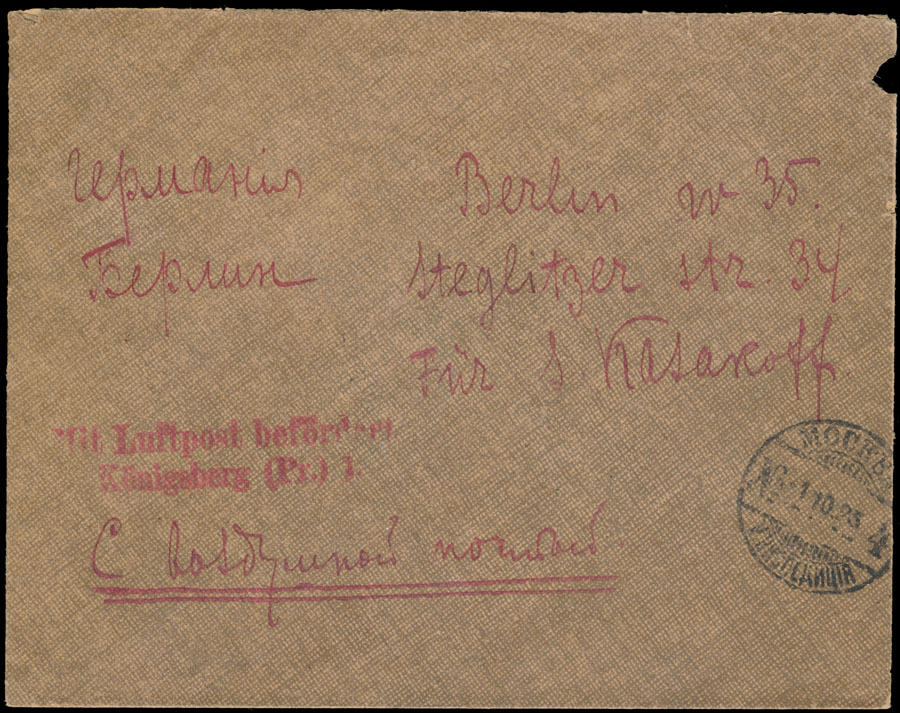 Германія
Берлин
Berlin W 35.
Steglitzer str. 34
Für S. Kasakoff.
Mit Luftpost befördert
Königsberg (Pr.) 1.
С воздушной почтой
МОСКВА
1.10.23
4
ЭКСПЕДИЦІЯ